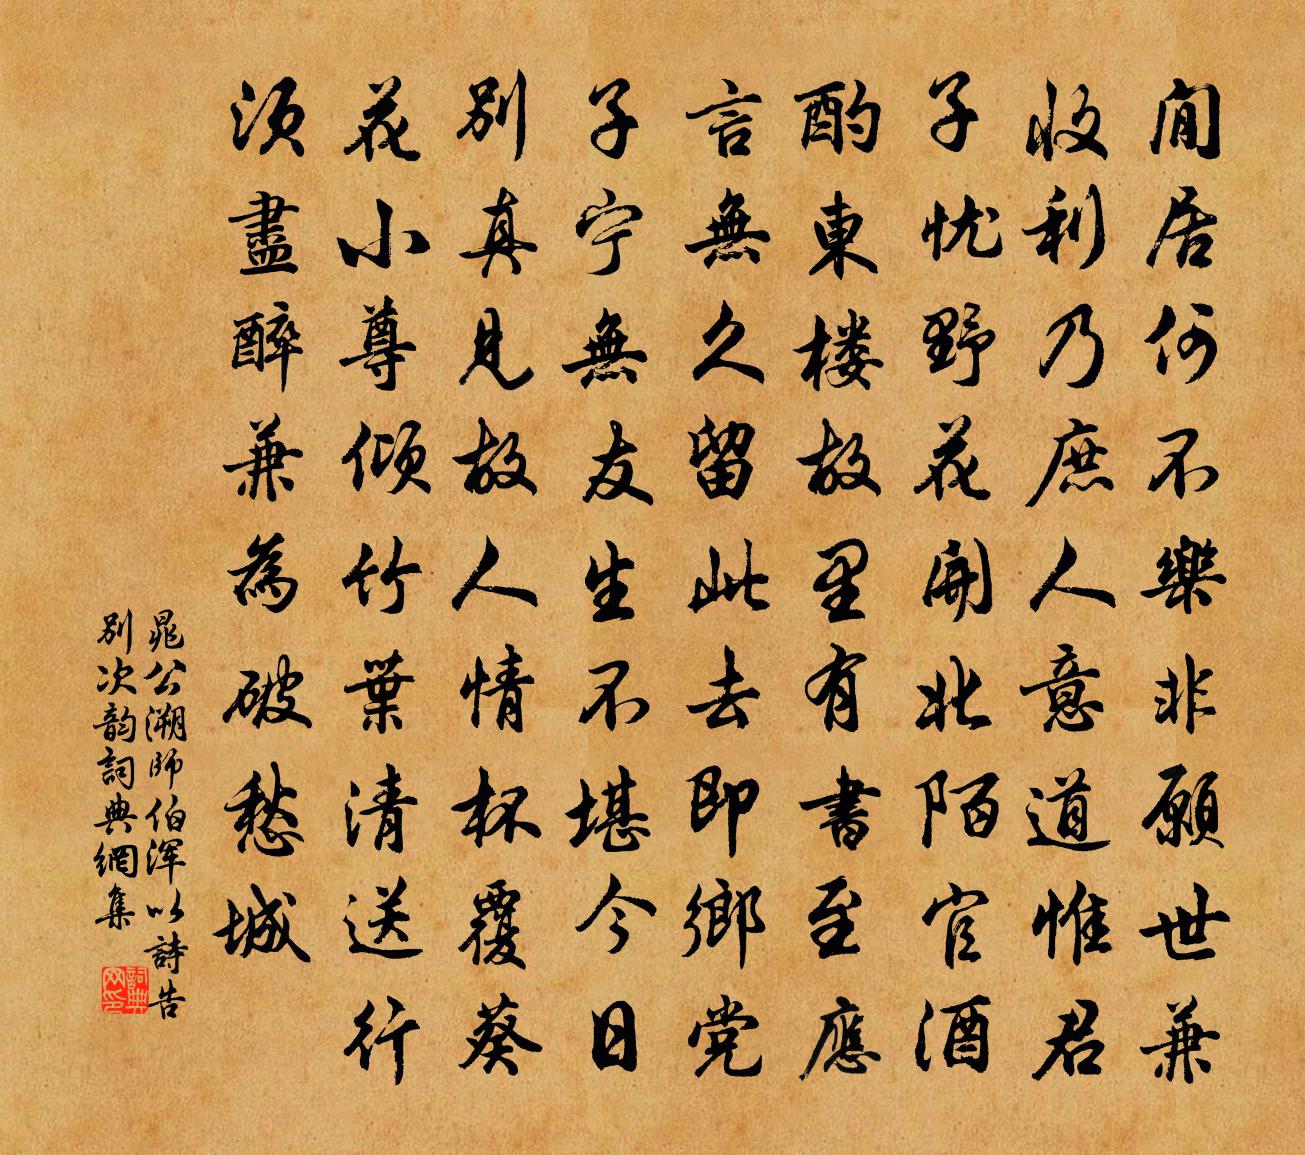 閒居何不樂非願世兼
收利乃庶人意道惟君
子忧野花開北陌官酒
酌東楼故里有書至應
言無久留此去即鄉党
子宁無友生不堪今日
別真見故人情杯覆葵
花小尊倾竹葉清送行
须盡醉兼為破愁城
晁公溯師伯浑以詩告
別次韵詞典網集
詞典网印